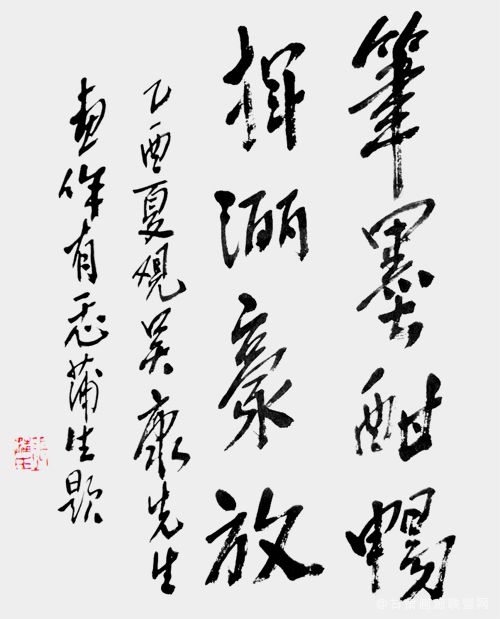 筆墨酣暢
揮灑豪放
乙酉夏觀吴康先生
畫作有感蒲生題